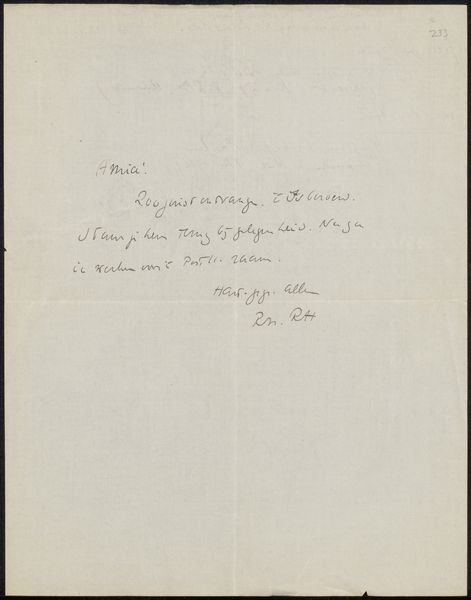 233
Amice!
Zoo juist ontvangen. 't Is
Stuur je hem terug bij gelegenheid. Nu ga
ik werken voor 't Port. raam.
Hart. gegr. allen
RH